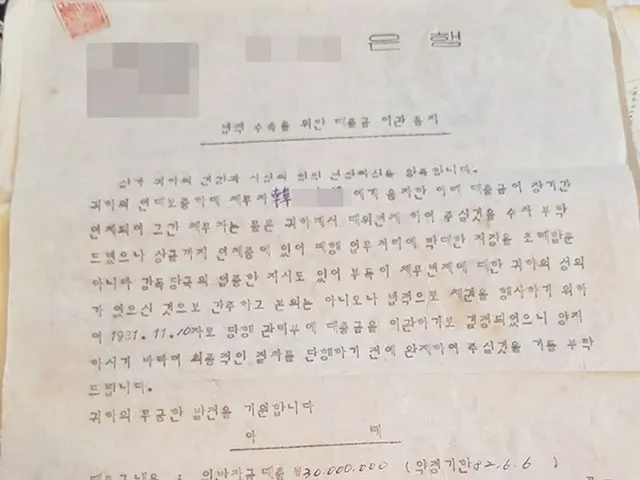 은 행
법적 수속을 위한 대출금 이관 통지
귀하의 연대보증하에 채무자 韓 에게 융자한 아래 대출금이 장기간
연체되어 그간 채무자는 물론 귀하께서 대위변제 하여 주실것을 수차 부탁
드렸으나 상금까지 연체중에 있어 폐행 업무처리에 막대한 지장을 초래할뿐
아니라 감독당국의 엄중한 지시도 있어 부득이 채무변제에 대한 귀하의 성의
가 없으신 것으로 간주하고 본의는 아니오나 법적으로 채권을 행사하기 위하
여 1981.11.10자로 당행 관리부에 대출금을 이관하기로 결정되었으니 양지
하시기 바라며 최종적인 절차를 단행하기 전에 완제하여 주실것을 거듭 부탁
드립니다.
귀하의 무궁한 발전을 기원합니다
아 래
일반자금대출 ₩30,000,000 (약정기한 82.6.6 )